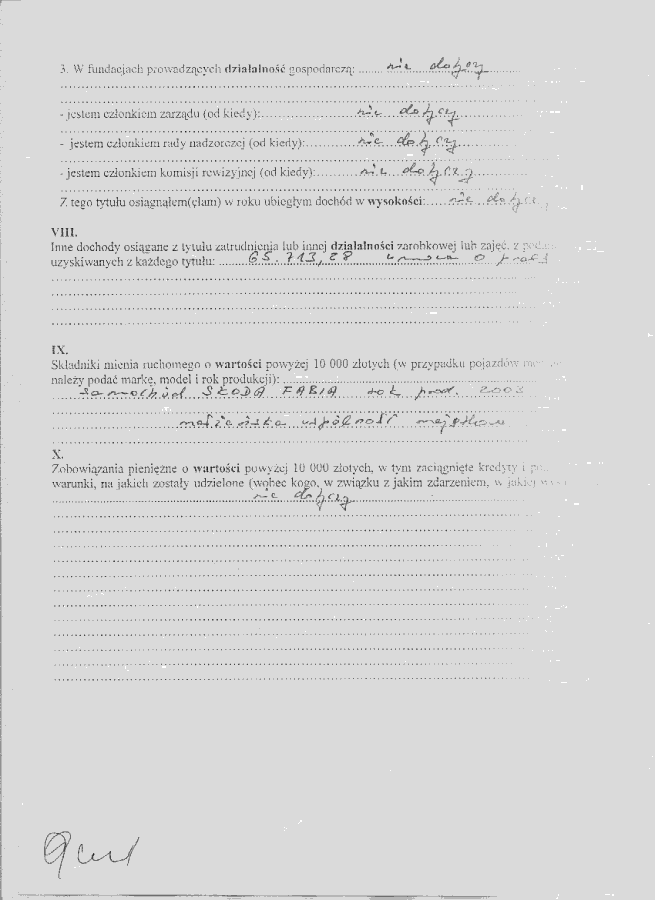 3. W fundacjach prowadzących działalność gospodarczą: nie dotyczy
- jestem członkiem zarządu (od kiedy): nie dotyczy
- jestem członkiem rady nadzorczej (od kiedy): nie dotyczy
- jestem członkiem komisji rewizyjnej (od kiedy): nie dotyczy
Z tego tytułu osiągnąłem(ęłam) w roku ubiegłym dochód w wysokości: nie
VIII.
Inne dochody osiągane z tytułu zatrudnienia lub innej działalności zarobkowej lub zajęć, z
uzyskiwanych z każdego tytułu: 65.713,28 umowa o
IX.
Składniki mienia ruchomego o wartości powyżej 10 000 złotych (w przypadku pojazdów
należy podać markę, model i rok produkcji):
samochód SKODA FABIA rok prod. 2003
małżeńska wspólność
X.
Zobowiązania pieniężne o wartości powyżej 10 000 złotych, w tym zaciągnięte kredyty i
warunki, na jakich zostały udzielone (wobec kogo, w związku z jakim zdarzeniem, w jakiej
nie dotyczy